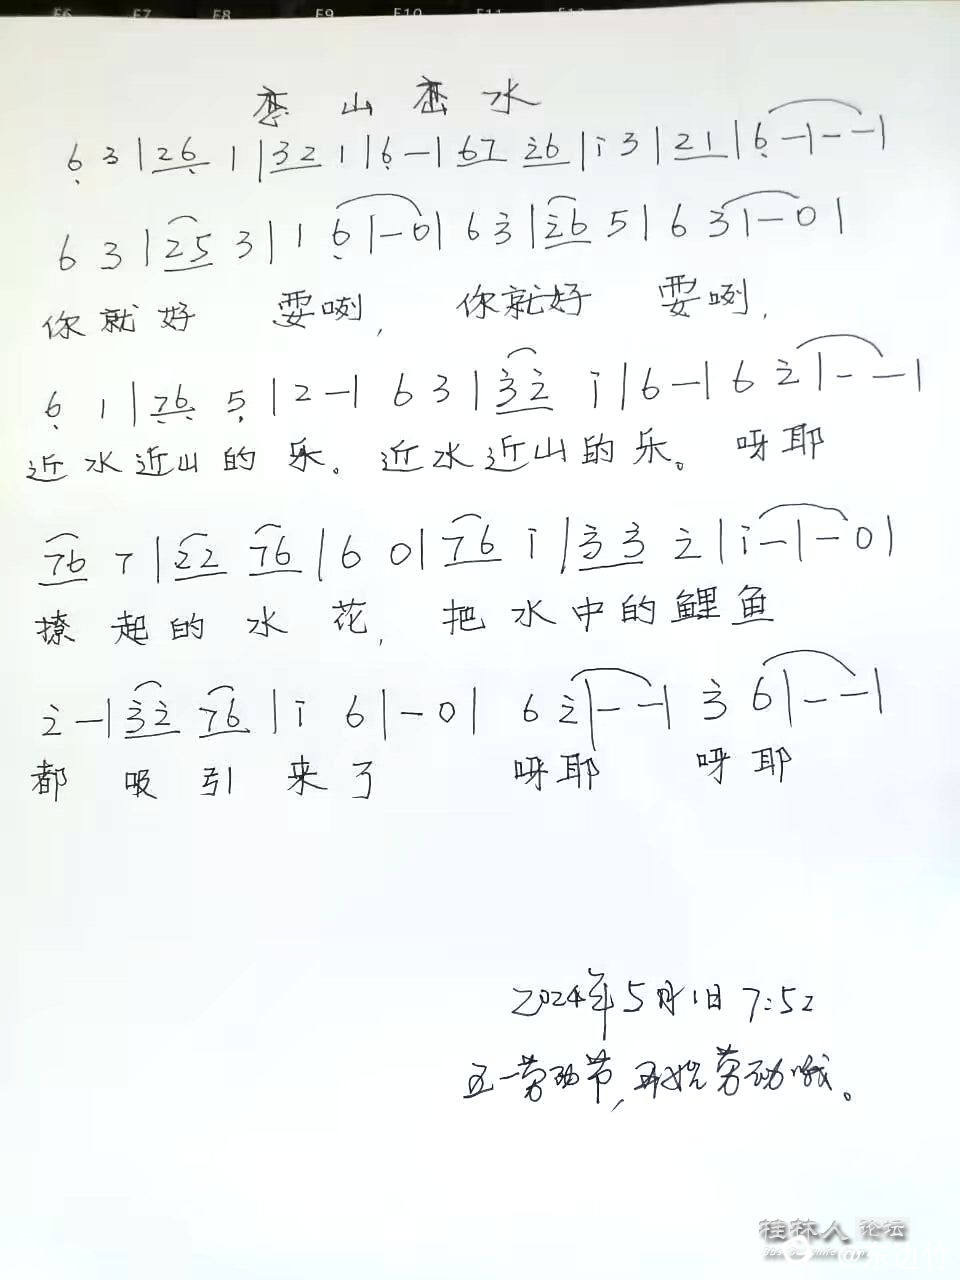 F6 F7 F8 F9 F10 F11 F12
恋山恋水
6̣ 3 | 2 6̣ 1 | 3 2 1 | 6̣ — | 6 7 2̇ 6 | i 3 | 2 1 | 6̣ — | — — |
6 3 | 2 5 3 | 1 6̣ | — 0 | 6 3̇ | 2̇ 6 5 | 6 3 | — 0 |
你就好 耍咧, 你就好 耍咧,
6̣ 1 | 7̣ 6̣ 5̣ | 2 — | 6 3 | 3̇ 2̇ i | 6 — | 6 2̇ | — — |
近水近山的乐。近水近山的乐。呀耶
7 6 7 | 2̇ 2 7 6 | 6 0 | 7 6 i | 3̇ 3̇ 2̇ | i — | — 0 |
撩起的水花, 把水中的鲤鱼
2̇ — | 3̇ 2̇ 7 6 | i 6 | — 0 | 6 2̇ | — — | 3̇ 6 | — — |
都吸引来了 呀耶 呀耶
2024年5月1日 7:52
五一劳动节, 开始劳动哦。
桂林人论坛